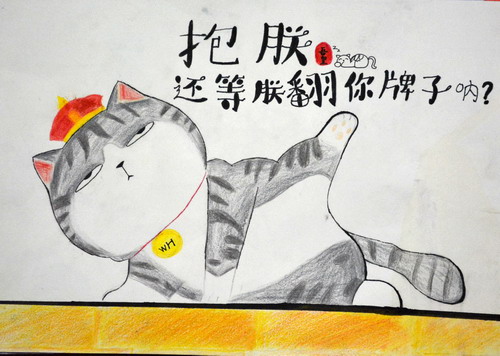 抱朕
还等朕翻你牌子呐?
WH